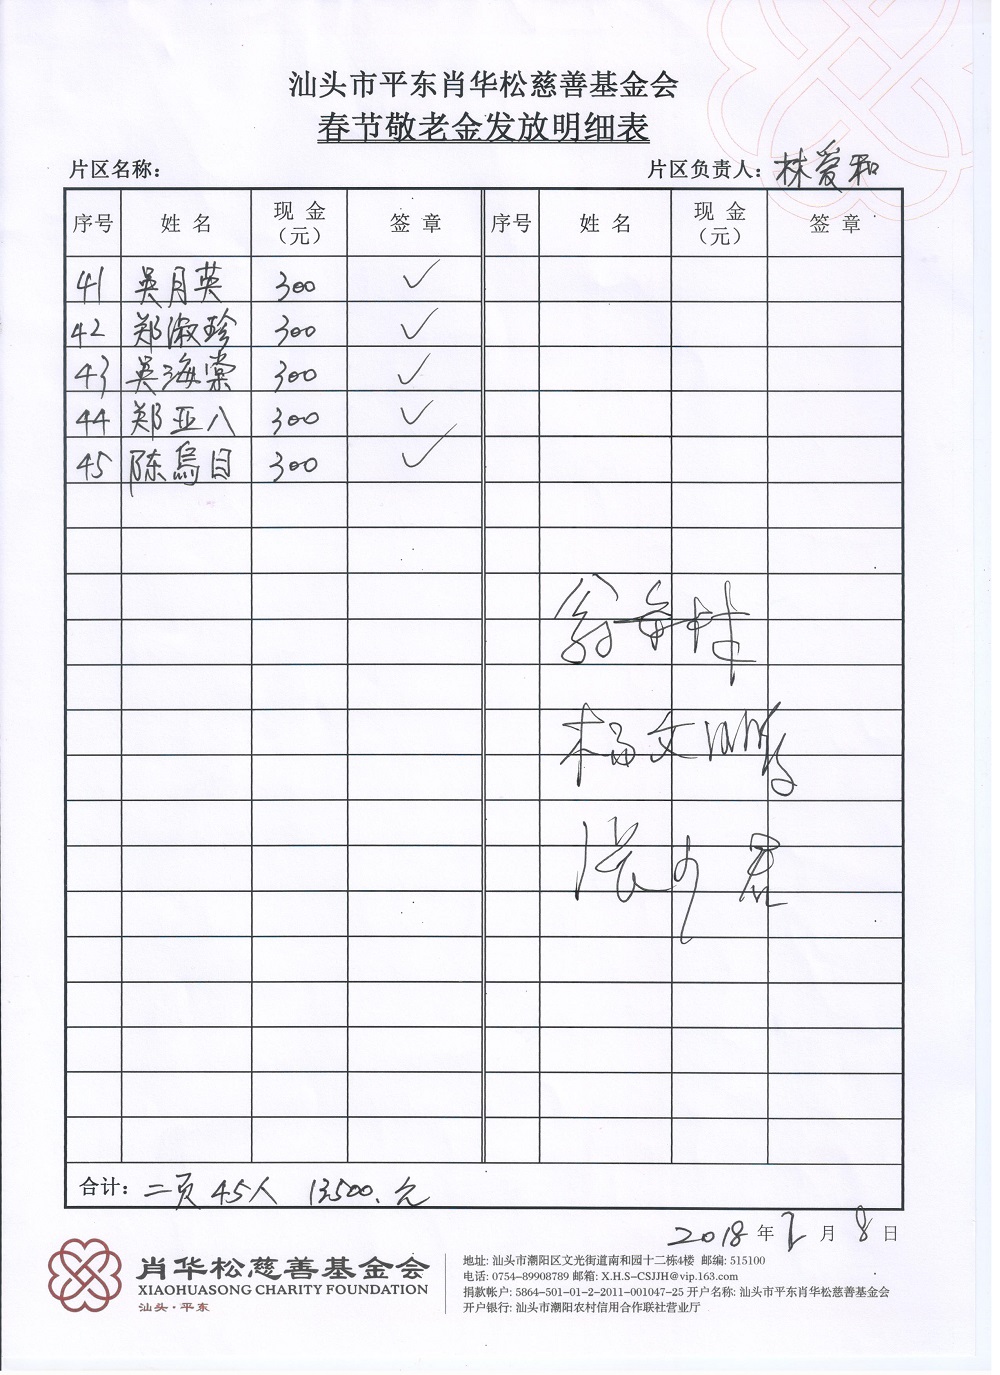 汕头市平东肖华松慈善基金会
春节敬老金发放明细表
片区名称： 片区负责人：林爱和
序号 姓名 现金（元） 签章 序号 姓名 现金（元） 签章
41 吴月英 300 ✓
42 郑淑珍 300 ✓
43 吴海棠 300 ✓
44 郑亚八 300 ✓
45 陈烏目 300 ✓
合计：二页 45人 13500.元
2018年2月8日
肖华松慈善基金会
XIAOHUASONG CHARITY FOUNDATION
汕头·平东
地址: 汕头市潮阳区文光街道南和园十二栋4楼 邮编: 515100
电话: 0754-89908789 邮箱: X.H.S-CSJJH@vip.163.com
捐款帐户: 5864-501-01-2-2011-001047-25 开户名称: 汕头市平东肖华松慈善基金会
开户银行: 汕头市潮阳农村信用合作联社营业厅